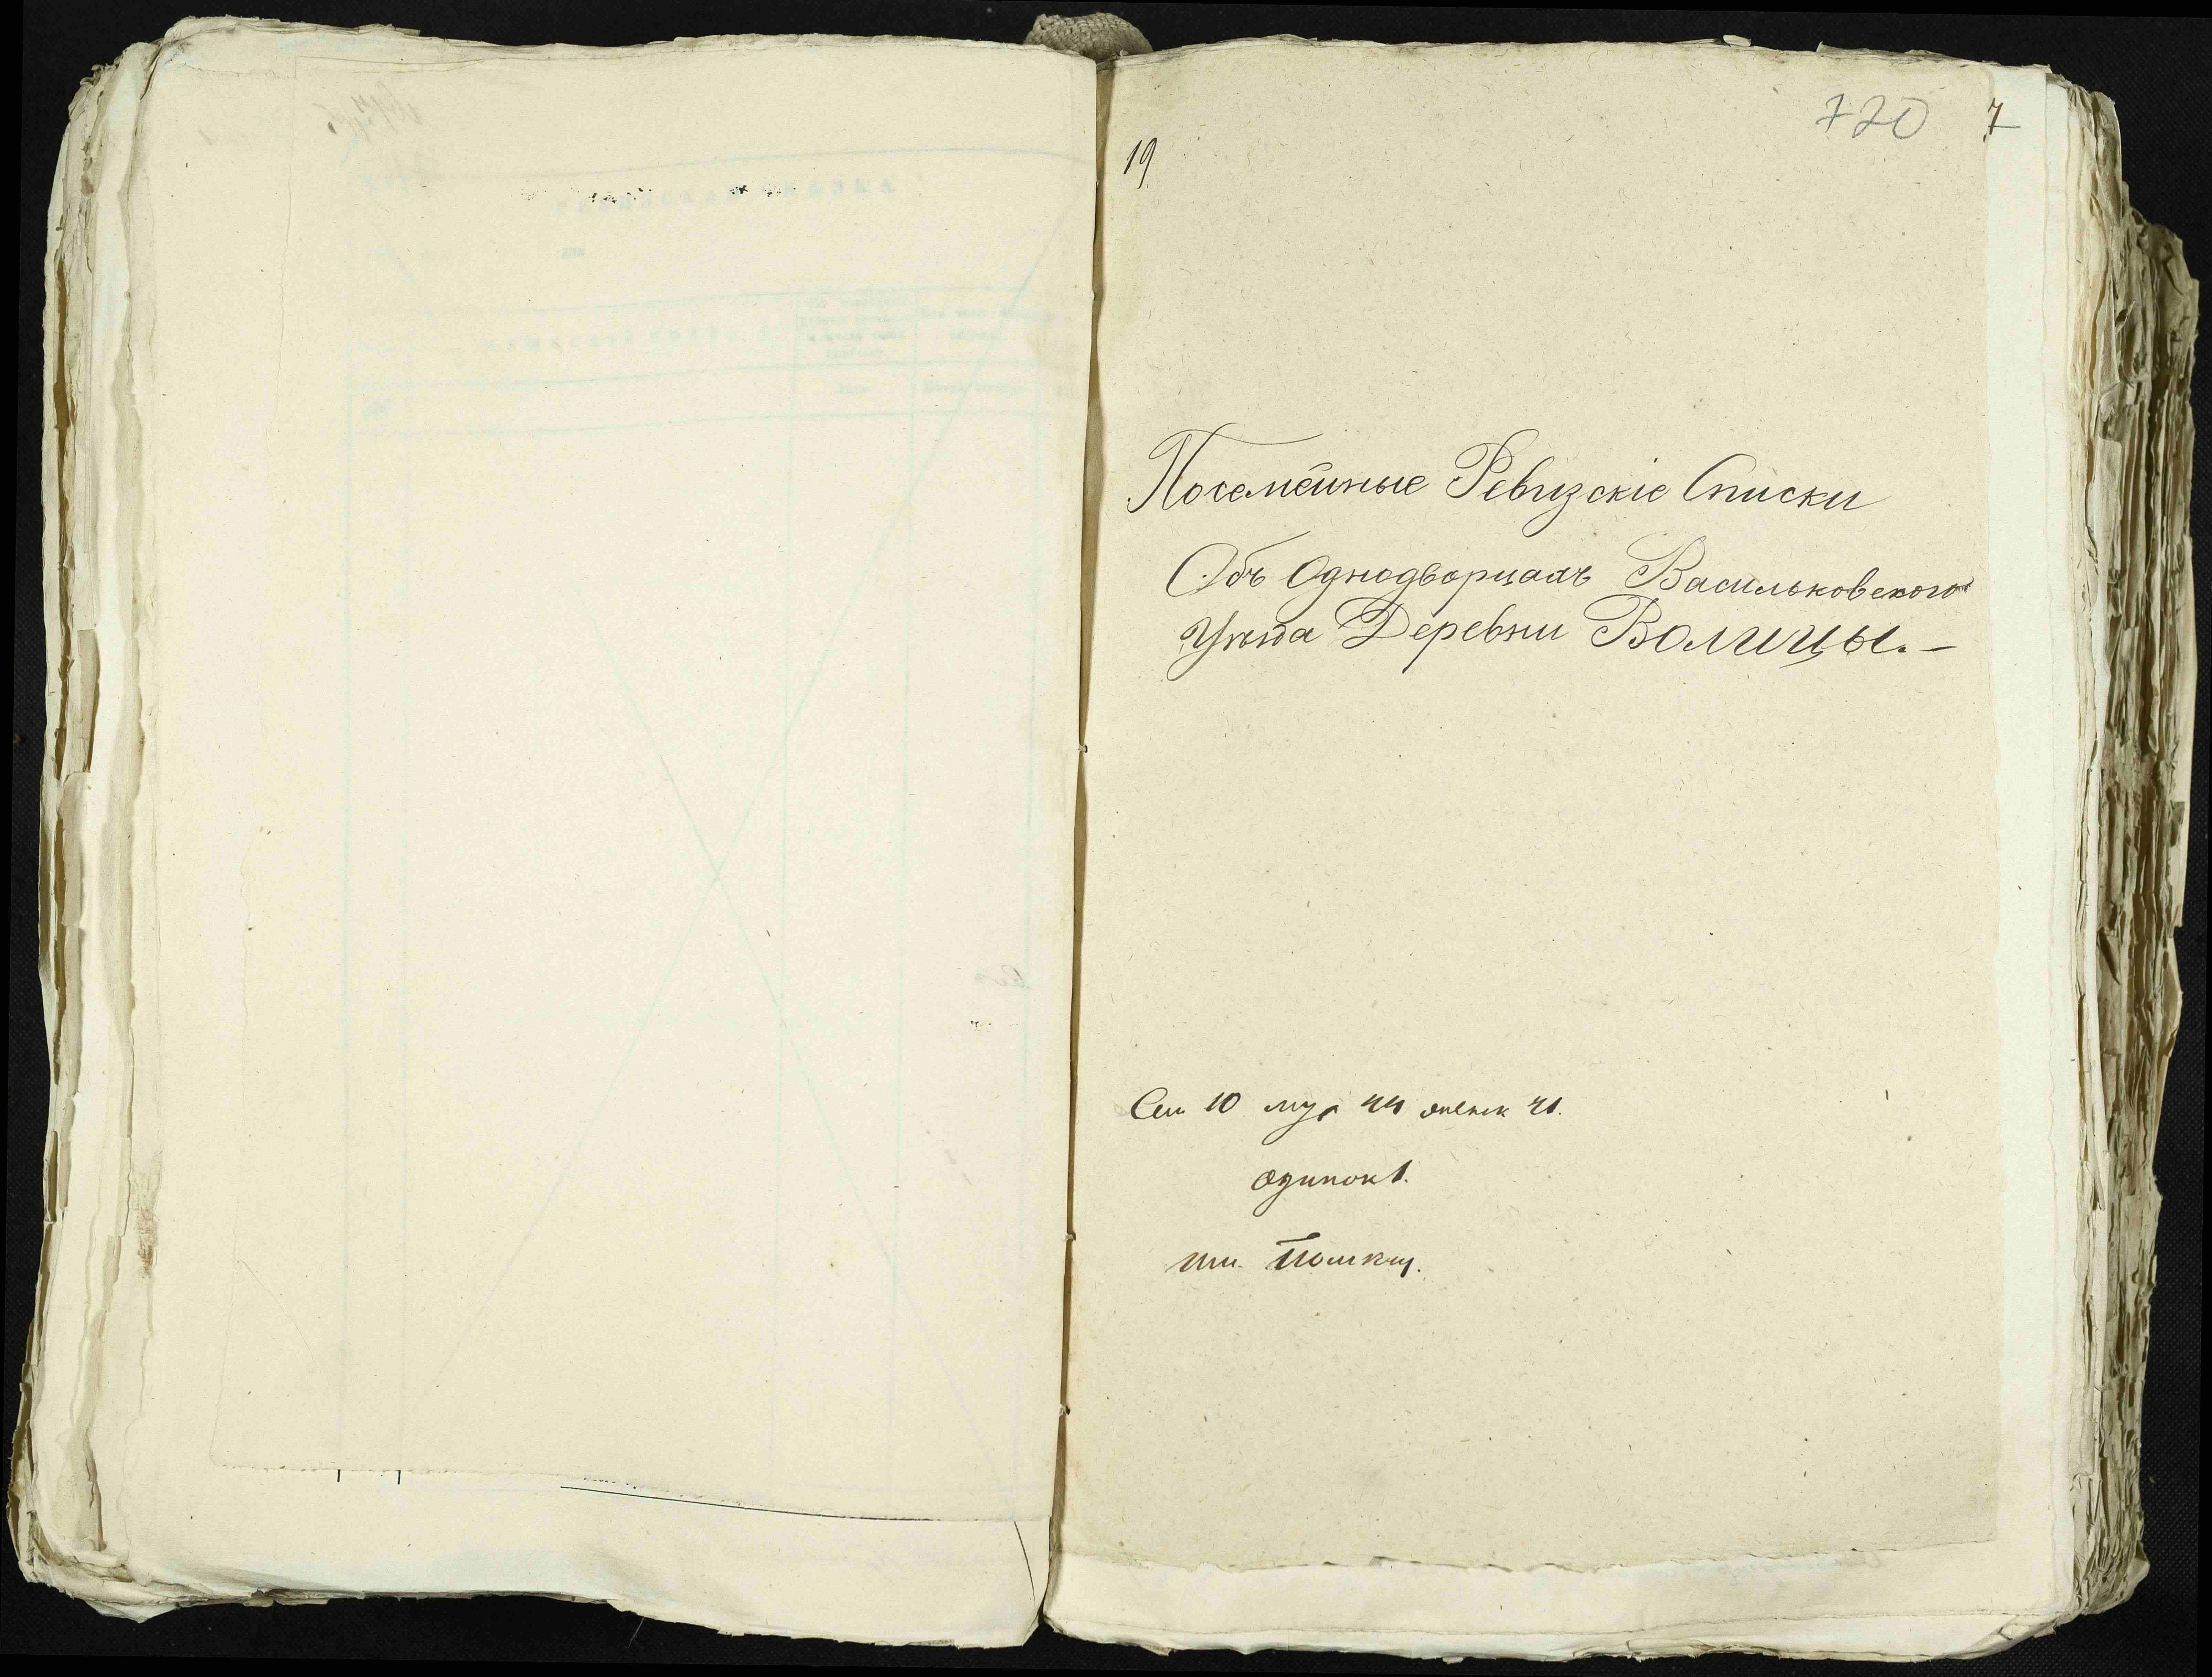 720 7
19
Посемейные Ревизскіе Списки
Объ Однодворцахъ Васильковского
Уѣзда Деревни Волицы.-
Сем 10 муж 44 женск 41.
одинок 1.